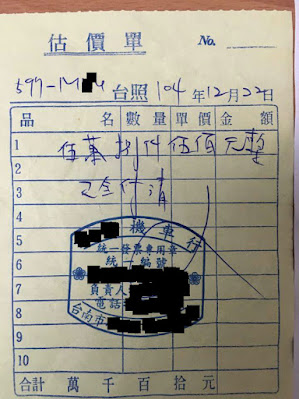 估價單 No.
台照 104年12月22日
品 名 數量 單價 金 額
1 伍萬捌仟伍佰元整
2
3 已全付清
4
機車行
5
統一發票專用章
6 統一編號
7 負責人
電話
8 台南市
9
10
合計 萬 千 百 拾 元